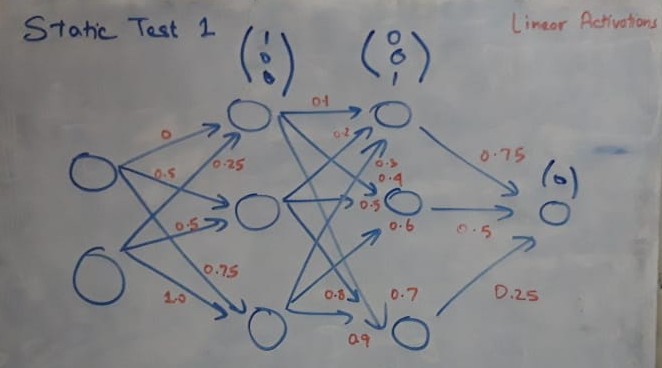 Static Test 1
Linear Activations
(1 0 0)
(0 0 1)
(0)
0
0.5
0.25
0.5
0.75
1.0
0.1
0.2
0.3
0.4
0.5
0.6
0.8
0.7
0.9
0.75
0.5
0.25